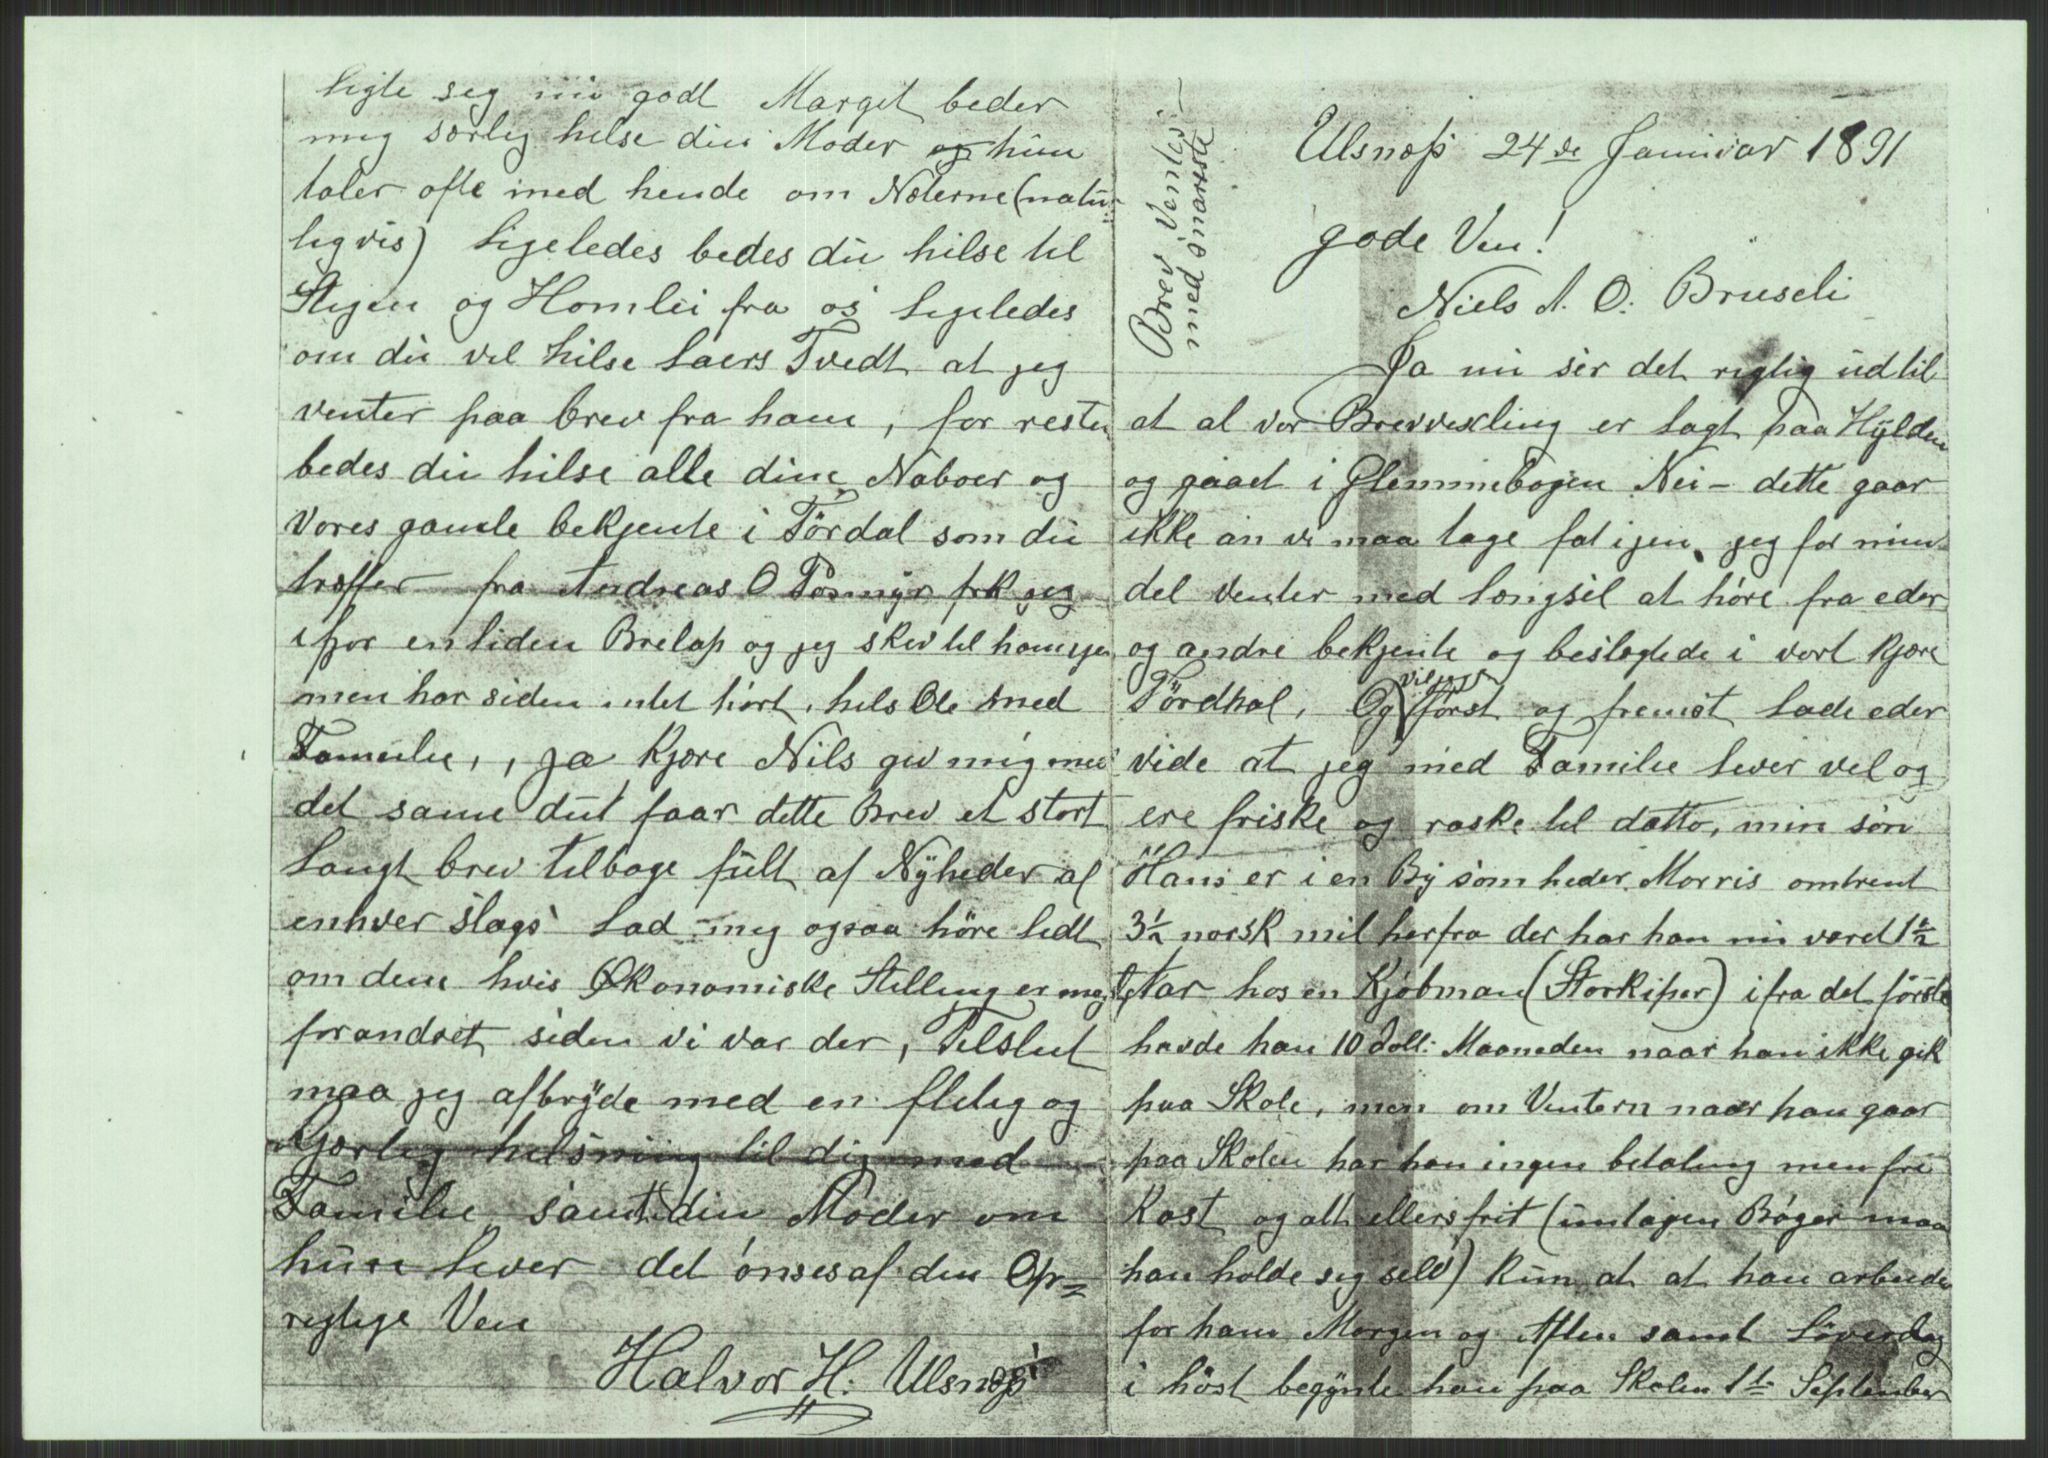 ligte seg nu godt Marget beder
mig særlig helse din Moder og hun
taler ofte med hende om Nøterne (natur-
ligvis) ligeledes bedes du hilse til
Stigen og Homlei fra os ligeledes
om du vil hilse Laers Tvedt at jeg
venter paa brev fra ham, for resten
bedes du hilse alle dine Naboer og
vores gamle bekjente i Tördal som du
træffer fra Andreas O Tosmyr fek jeg
ifjor en liden Brelap og jeg skev til ham igen
men har siden intet hört, hels Ole med
Familie, , ja Kjære Nils giv mig med
det same du faar dette Brev et stort
langt brev tilbage fült af Nÿheder af
enhver slags lad mig ogsaa höre lidt
om dem hvis Økonomiske Stelling er meget
forandret siden vi var der, Tilslut
maa jeg afbrÿde med en flitig og
Kjærlig helsning til dig med
Familie samt din Moder om
hun lever det önses af din Op-
rigtige Ven
Halvor H. Ulsnæs
Brev Ventes
med snareste
Ulsnæs 24de Januar 1891
gode Ven!
Niels A. O. Bruseli
Ja nu ser det rigtig ud til
at al vor Brevvexling er lagt paa Hÿlden
og gaaet i Glemmebogen Nei - dette gaar
ikke an vi maa tage fat igen, jeg for min
del venter med længsel at höre fra eder
og andre bekjente og beslegtede i vort Kjære
Tördhal, Og vil jeg först og fremst lade eder
vide at jeg med Familie lever vel og
ere friske og raske til datto, min sön
Hans er i en Bÿ som heder Morris omtrent
3½ norsk mil herfra der har han nu været 1½
Aar hos en Kjöbman (Storkiper) ifra det förste
havde han 10 Doll: Maaneden naar han ikke gik
paa Skole, men om Vintern naar han gaar
paa Skolen har han ingen betaling men fri
Kost og alt ellers frit (untagen Böger maa
han holde sig selv) Kun at at han arbeider
for ham Morgen og Aften samt Löverdag
i höst begÿnte han paa Skolen 1te September